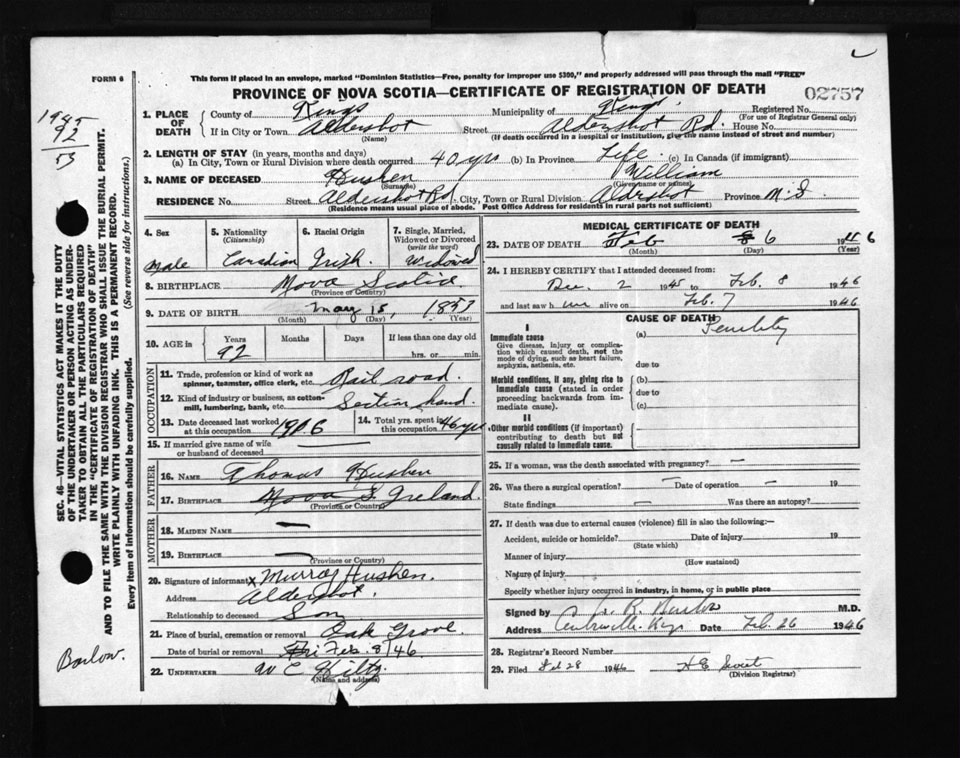 FORM 6
This form if placed in an envelope, marked "Dominion Statistics—Free, penalty for improper use $300," and properly addressed will pass through the mail "FREE"
PROVINCE OF NOVA SCOTIA—CERTIFICATE OF REGISTRATION OF DEATH 02757
1945
92
53
SEC. 46—VITAL STATISTICS ACT MAKES IT THE DUTY
OF THE UNDERTAKER OR PERSON ACTING AS UNDER-
TAKER TO OBTAIN ALL THE PARTICULARS REQUIRED
IN THE "CERTIFICATE OF REGISTRATION OF DEATH"
AND TO FILE THE SAME WITH THE DIVISION REGISTRAR WHO SHALL ISSUE THE BURIAL PERMIT.
WRITE PLAINLY WITH UNFADING INK. THIS IS A PERMANENT RECORD.
Every item of information should be carefully supplied. (See reverse side for instructions.)
Barlow.
1. PLACE OF DEATH County of Kings Municipality of Kings Registered No.
(For use of Registrar General only)
If in City or Town Aldershot Street Aldershot Rd. House No.
(Name) (If death occurred in a hospital or institution, give the name instead of street and number)
2. LENGTH OF STAY (in years, months and days)
(a) In City, Town or Rural Division where death occurred 40 yrs (b) In Province Life (c) In Canada (if immigrant)
3. NAME OF DECEASED Hushen William
(Surname) (Given name or names)
RESIDENCE No. Street Aldershot Rd. City, Town or Rural Division Aldershot Province N.S.
(Residence means usual place of abode. Post Office Address for residents in rural parts not sufficient)
4. Sex 5. Nationality (Citizenship) 6. Racial Origin 7. Single, Married, Widowed or Divorced (write the word)
Male Canadian Irish. Widowed
8. BIRTHPLACE Nova Scotia
(Province or Country)
9. DATE OF BIRTH May 15, 1853
(Month) (Day) (Year)
10. AGE in Years Months Days If less than one day old
92 hrs. or min.
OCCUPATION
11. Trade, profession or kind of work as spinner, teamster, office clerk, etc. Rail road.
12. Kind of industry or business, as cotton-mill, lumbering, bank, etc. Section hand.
13. Date deceased last worked at this occupation 1906 14. Total yrs. spent in this occupation 46 yrs
15. If married give name of wife or husband of deceased
FATHER
16. NAME Thomas Hushen
17. BIRTHPLACE Nova S. Ireland.
(Province or Country)
MOTHER
18. MAIDEN NAME —
19. BIRTHPLACE —
(Province or Country)
20. Signature of informant x Murray Hushen.
Address Aldershot.
Relationship to deceased Son
21. Place of burial, cremation or removal Oak Grove.
Date of burial or removal Fri Feb. 8/46
22. UNDERTAKER W C Hiltz
(Name and address)
MEDICAL CERTIFICATE OF DEATH
23. DATE OF DEATH Feb 6 1946
(Month) (Day) (Year)
24. I HEREBY CERTIFY that I attended deceased from:
Dec. 2 1945 to Feb. 8 1946
and last saw him alive on Feb. 7 1946
CAUSE OF DEATH
I
Immediate cause (a) Senility
Give disease, injury or complication which caused death, not the mode of dying, such as heart failure, asphyxia, asthenia, etc.
due to
Morbid conditions, if any, giving rise to immediate cause (stated in order proceeding backwards from immediate cause).
(b)
due to
(c)
II
Other morbid conditions (if important) contributing to death but not causally related to immediate cause.
25. If a woman, was the death associated with pregnancy? —
26. Was there a surgical operation? — Date of operation — 19
State findings — Was there an autopsy?
27. If death was due to external causes (violence) fill in also the following:—
Accident, suicide or homicide? Date of injury 19
(State which)
Manner of injury
(How sustained)
Nature of injury
Specify whether injury occurred in industry, in home, or in public place
Signed by M.D.
Address Centreville Kings Date Feb. 26 1946
28. Registrar's Record Number
29. Filed Feb 28 1946
(Division Registrar)